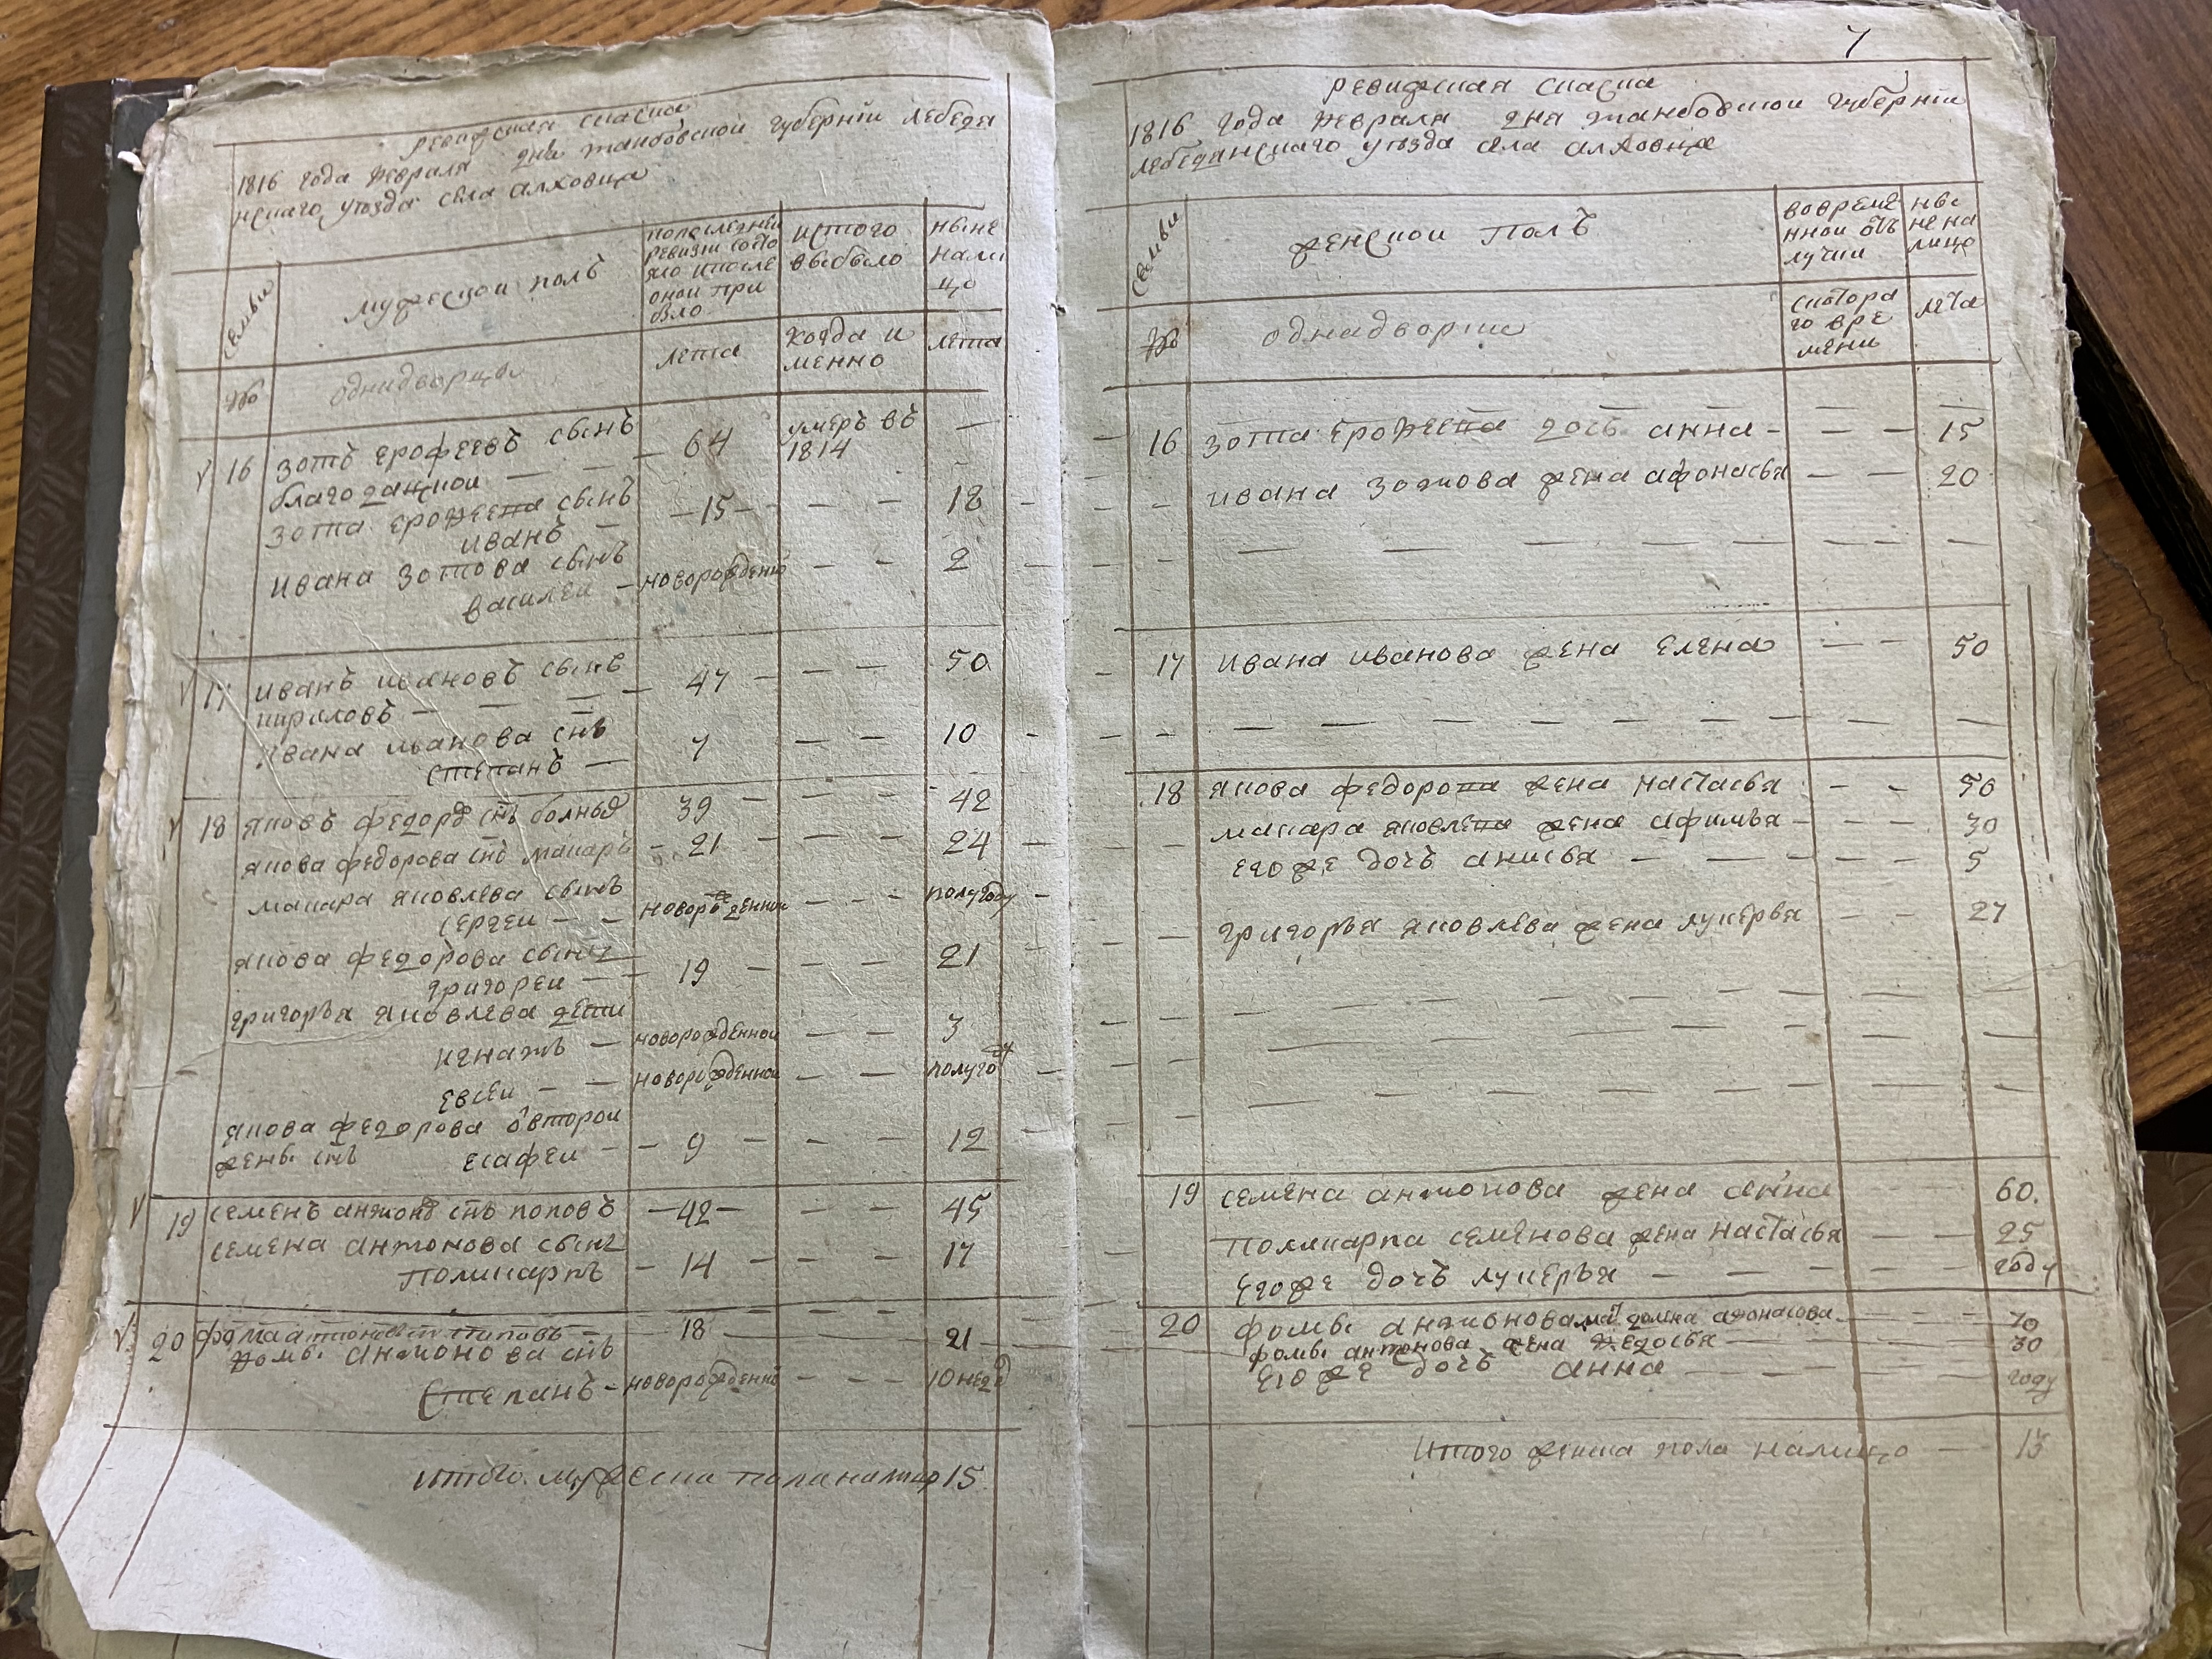 ревижская скаска
1816 года февраля дня танбовской губернiи лебедя
нскаго уъзда села алховца
семьи
мужескои полъ
попоследнеи
ревизiи состо
яло ипосле
онои при
было
истого
выбыло
ныне
нали
цо
№
однадворцы
лета
когда и
менно
лета
16 зотъ ерофеевъ сынъ
благодацкои — — — 64 умеръ въ 1814 —
зота ерофеева сынъ
иванъ — 15 — — — 18
ивана зотова сынъ
василеи — новорожденъ — — 2
17 иванъ ивановъ сынъ
кириловъ — — — 47 — — — 50
ивана иванова снъ
степанъ — 7 — — 10
18 яковъ федоровъ снъ 39 — — — 42
якова федорова снъ макаръ — 21 — — — 24
макара яковлева сынъ
сергеи — — новорожденнои — — — полугоду
якова федорова сынъ
григореи — 19 — — — 21
григорья яковлева дети
игнатъ — новорожденнои — — 3
евсеи — — новорожденнои — — полуго
якова федорова отвторои
жены снъ есафеи — — 9 — — — 12
19 семенъ антоновъ снъ поповъ — 42 — — — 45
семена антонова сынъ
поликарпъ — 14 — — — 17
20 фома антоновъ снъ поповъ — 18 — — — 21
фомы антонова снъ
степанъ — новорожденъ — — — 10 недъ
итого мужеска пола налицо 15
7
ревижская скаска
1816 года февраля дня танбовскои губернiи
лебедянскаго уъзда села алховца
семьи
женскои полъ
вовреме
ннои отъ
лучки
ны
не на
лицо
№
однадворки
скотора
го вре
мени
лета
16 зота ерофеева дочь анна — — — — 15
ивана зотова жена афонасья — — 20
17 ивана иванова жена елена — — 50
18 якова федорова жена настасья — — 50
макара яковлева жена афимья — — — 30
егоже дочь анисья — — — — 5
григорья яковлева жена лукерья — — 27
19 семена антонова жена анна 60.
поликарпа семенова жена настасья — — 25
егоже дочь лукерья — — — — — году
20 фомы антонова мать домна афонасова — — — 70
фомы антонова жена федосья — — — 30
егоже дочь анна — — — — году
Итого женска пола налицо — 13